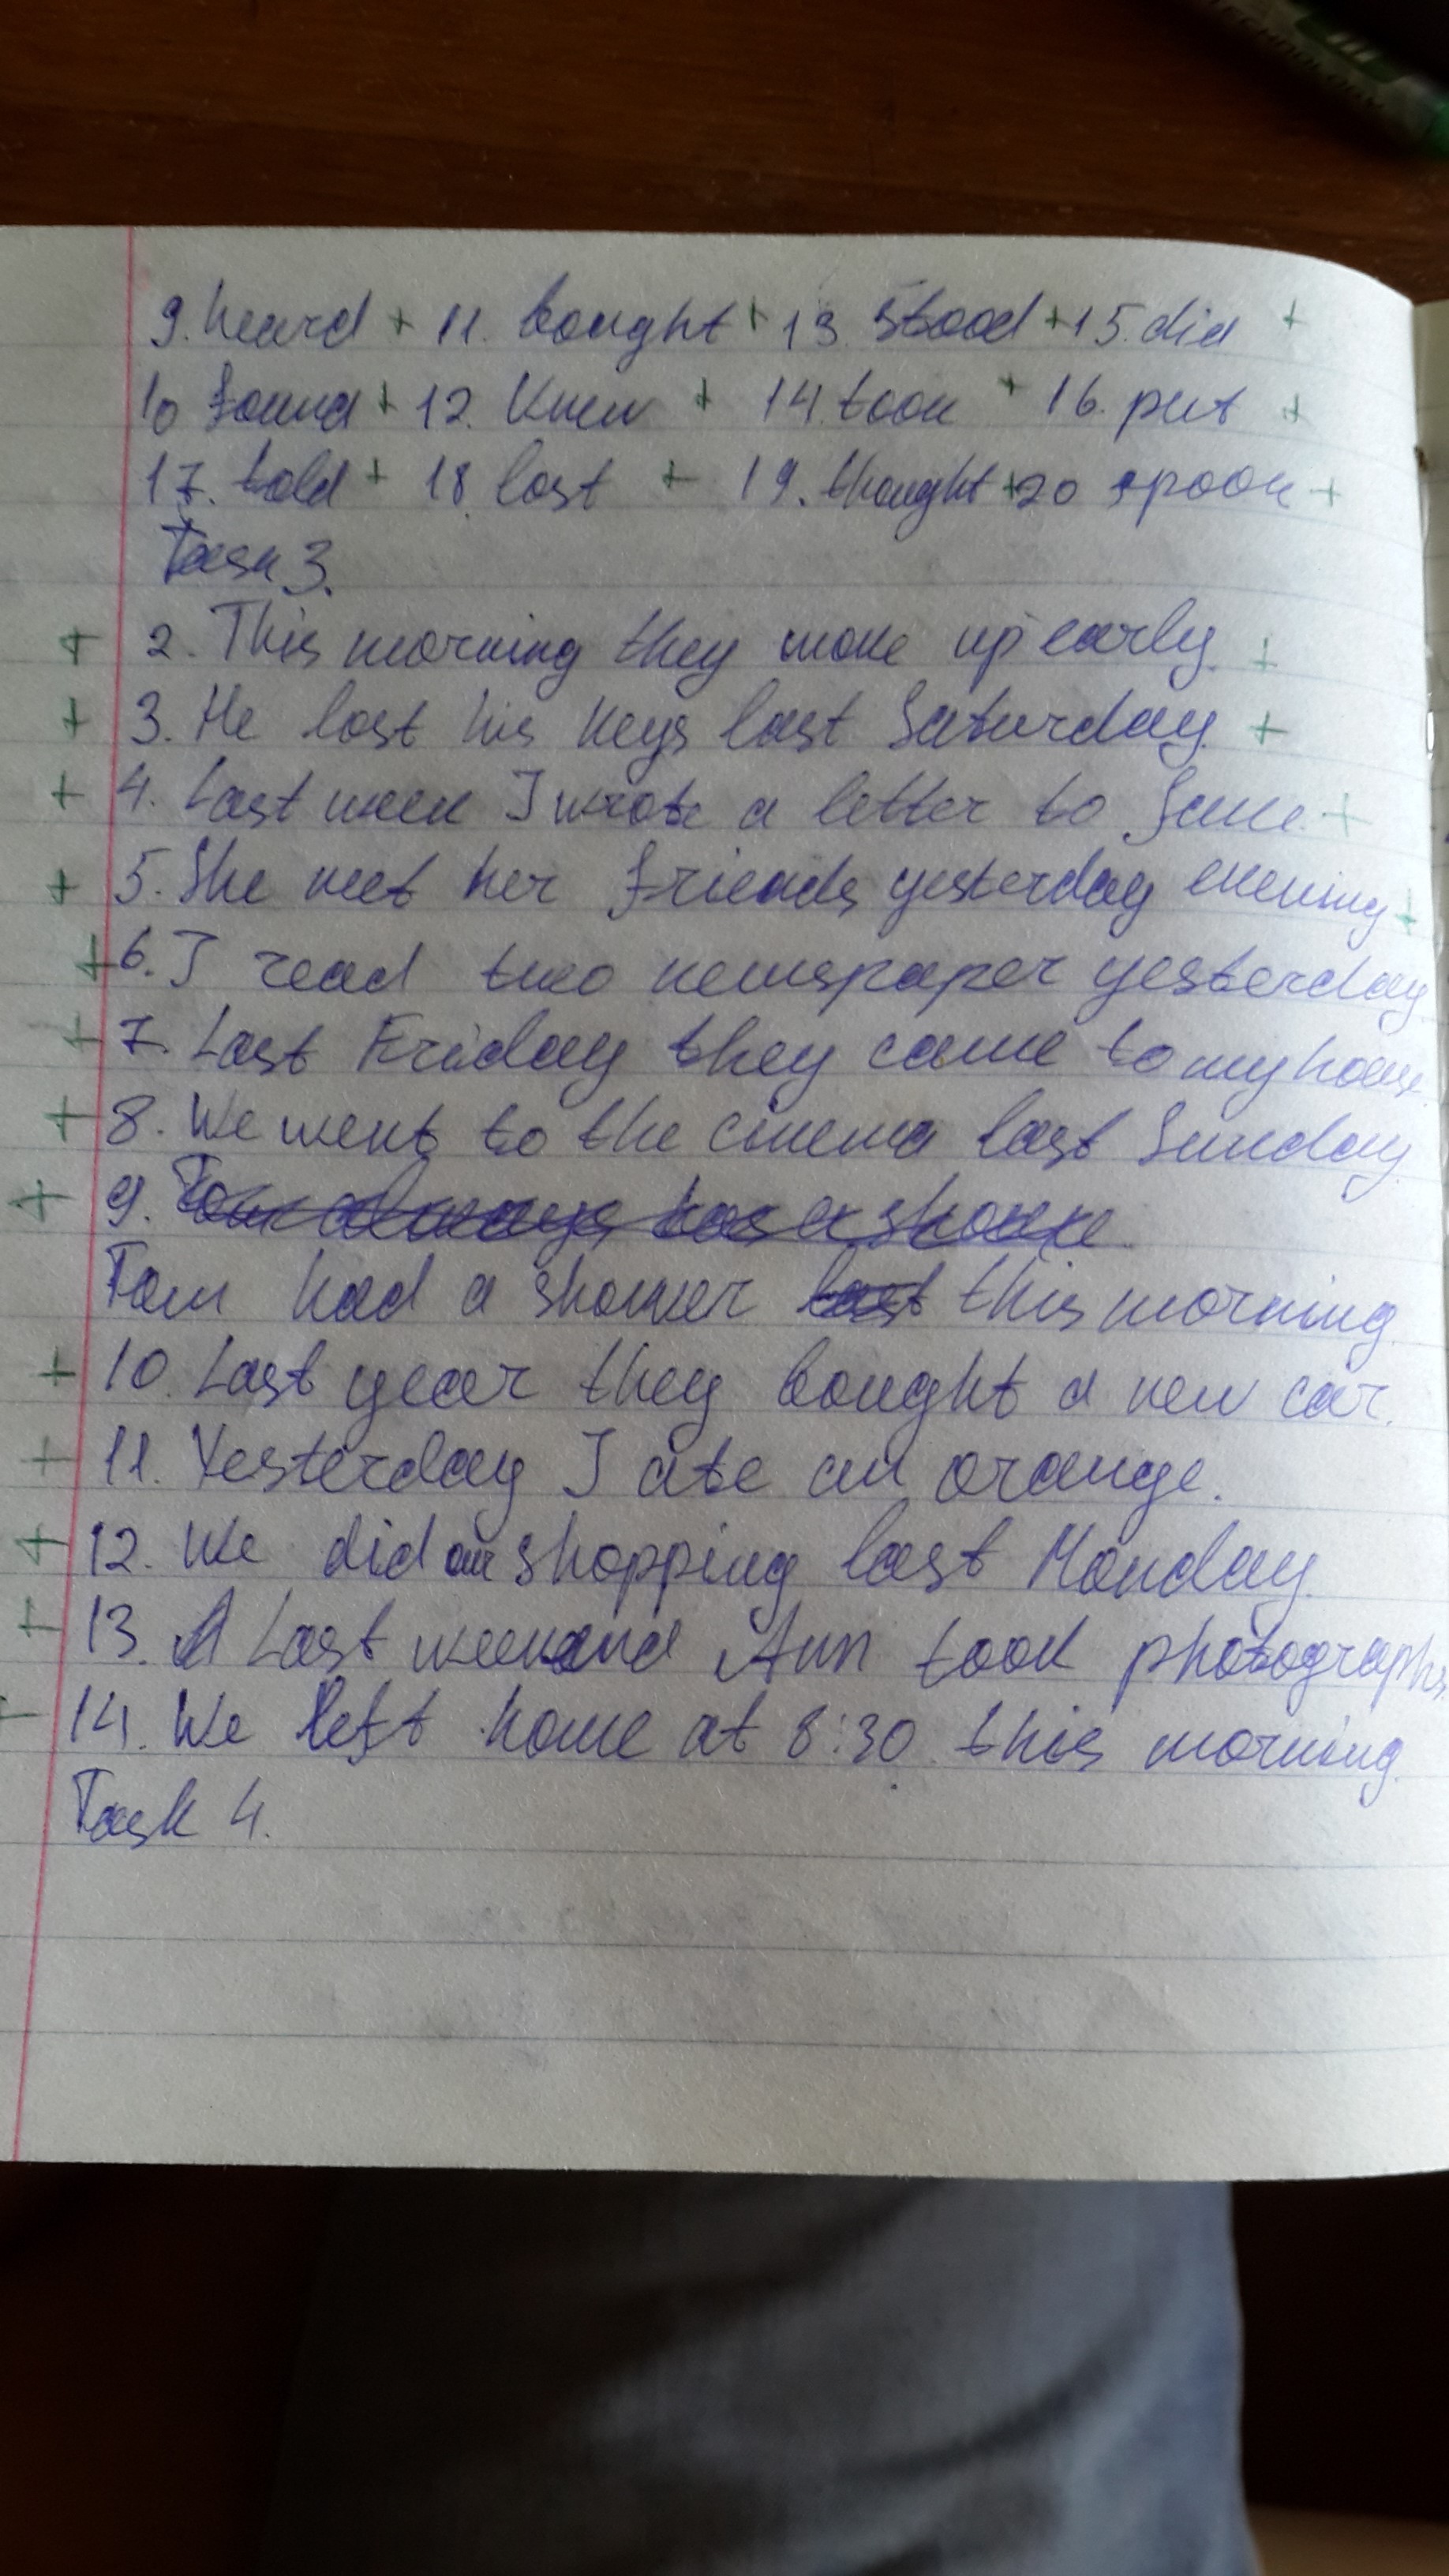 TECHNOLOGY
9. heard + 11. bought + 13. stood + 15. did +
10 found + 12. knew + 14. took + 16. put +
17. told + 18. lost + 19. thought + 20 spook +
Task 3.
+ 2. This morning they woke up early. +
+ 3. He lost his keys last Saturday. +
+ 4. Last week I wrote a letter to Jane. +
+ 5. She met her friends yesterday evening +
+ 6. I read two newspaper yesterday
+ 7. Last Friday they came to my house.
+ 8. We went to the cinema last Sunday.
+ 9. Tom always has a shower
Tom had a shower last this morning.
+ 10. Last year they bought a new car.
+ 11. Yesterday I ate an orange.
+ 12. We did our shopping last Monday
+ 13. A Last weekend Ann took photographs
+ 14. We left home at 8:30 this morning.
Task 4.